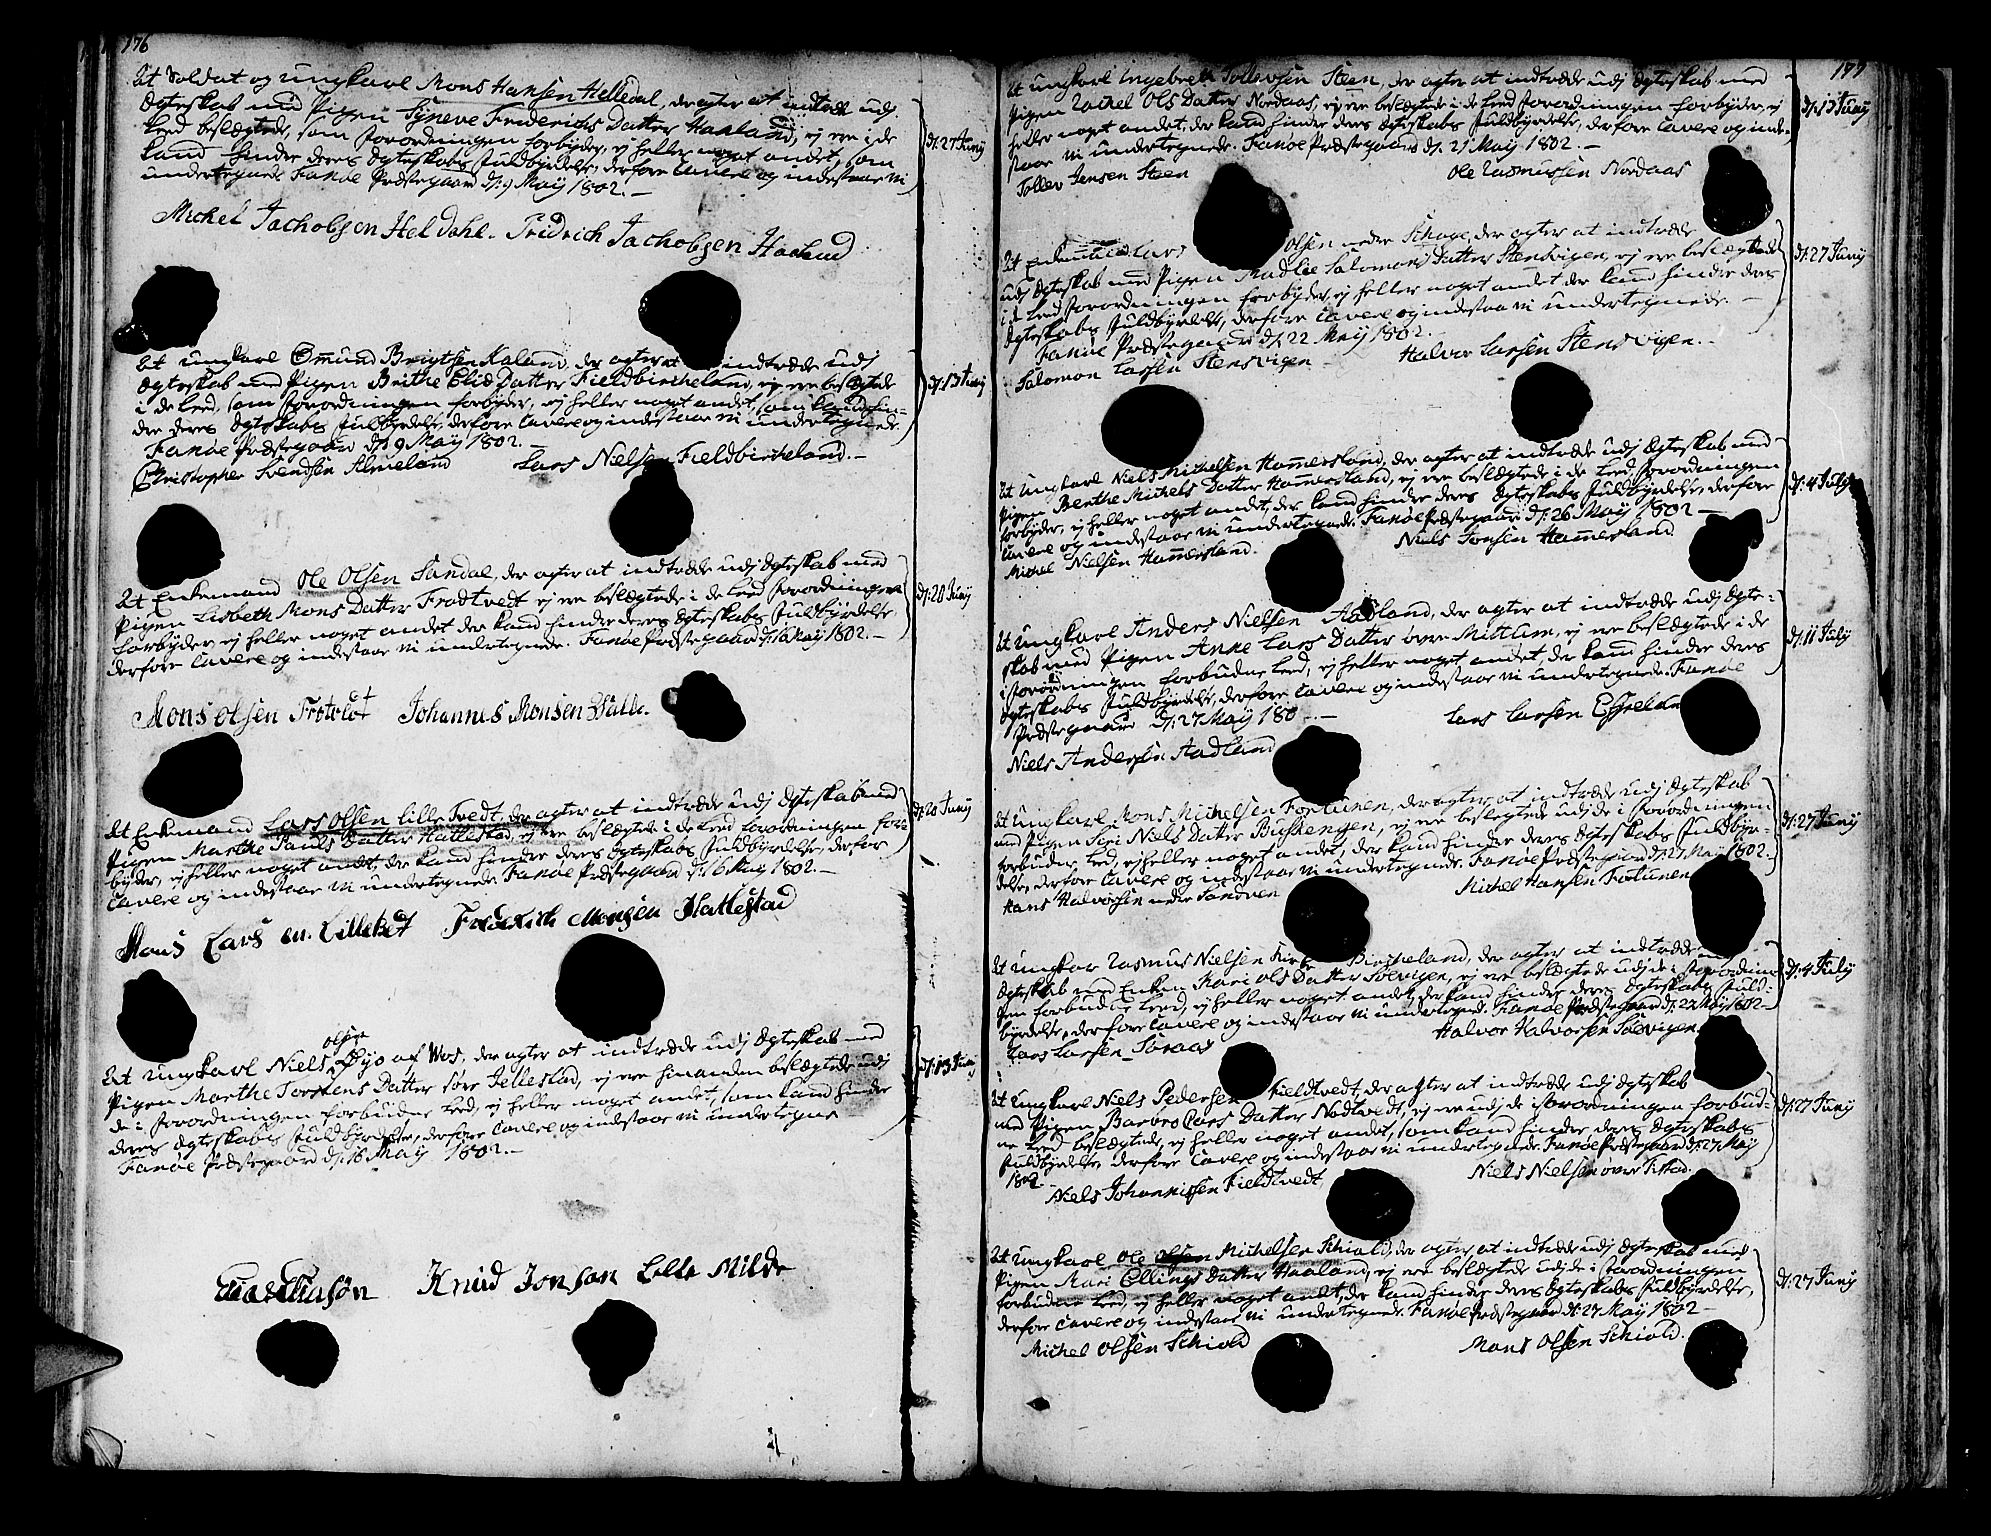 176
At Soldat og Ungkarl Mons Hansen Helledal, der agter at indtræde udj
Ægteskab med Pigen Synneve Friderichs Datter Haaland, ej ere i de
Leed beslægtede, som Forordningen forbyder, ej heller noget andet, som
kand hindre deres Ægteskabs Fuldbyrdelse, derfore Cavere og indestaae vi
undertegnede Fanøe Præstegaard d: 9 Maÿ 1802.
d: 27 Junÿ
Michel Jachobsen Heldahl. Fridrich Jachobsen Haaland
At Unkarl Ommund Brigtsen Kaland, der agter at indtræde udj
Ægteskab med Pigen Brithe Elie Datter Fieldbircheland, ej ere beslægtede
i de Leed, som Forordningen forbyder, ej heller noget andet, som kand hin-
dre deres Ægteskabs Fuldbyrdelse, derfore Cavere og indestaae vi undertegnede
Fanøe Præstegaard d: 9 Maÿ 1802.
d: 13 Junÿ
Christopher Svendsen Almeland Lars Nielsen Fieldbircheland.
At Enkemand Ole Olsen Sandal, der agter at indtræde udj Ægteskab med
Pigen Lisbeth Mons Datter Frodtvedt ej ere beslægtede i de Leed Forordningen
forbyder, ej heller noget andet der kand hindre deres Ægteskabs Fuldbyrdelse
derfore Cavere og indestaae vi undertegnede. Fanøe Præstegaard d: 16 Maÿ 1802.
d: 20 Junÿ
Mons Olsen Frotvedt Johannes Monsen
At Enkemand Lars Olsen Lille Tvedt, der agter at indtræde udj Ægteskab med
Pigen Marthe Pauls Datter Hattestad, ej ere beslægtede i de Leed Forordningen for-
byder, ej heller noget andet, der kand hindre deres Ægteskabs Fuldbyrdelse, derfor
Cavere og indestaae vi undertegnede Fanøe Præstegaard d: 16 Maÿ 1802.
d: 20 Junÿ
Mons Lars en. Lilletvet Frederich Monsen Hattestad
olsen
At Ungkarl Niels Øyjo af Wos, der agter at indtræde udj Ægteskab med
Pigen Marthe Torstens Datter søre Jellestad, ej ere hinanden beslægtede udj
de i Forordningen forbudne Leed, ej heller noget andet, som kand hindre
deres Ægteskabs Fuldbyrdelse, derfore Cavere og indestaae vi undertegne
Fanøe Præstegaard d: 16 Maÿ 1802.
d: 13 Junÿ
Knud Jonsøn Lille Milde
177
At Ungkarl Ingebreth Tollevsen Steen, der agter at indtræde udj Ægteskab med
Pigen Rachel Ols Datter Nordaas, ej ere beslægtede i de Leed Forordningen forbyder, ej
heller noget andet, der kand hindre deres Ægteskabs Fuldbyrdelse, derfore Cavere og inde-
staae vi undertegnede. Fanøe Præstegaard d: 21 Maÿ 1802.
d: 13 Junÿ
Tollev Jensen Steen Ole Rasmussen Nordaas
At Enkemand Lars Olsen nedre Schage, der agter at indtræde
udj Ægteskab med Pigen Madlie Salomons Datter Stensvigen, ej ere beslægtede
i de Leed Forordningen forbyder, ej heller noget andet der kand hindre deres
Ægteskabs Fuldbyrdelse, derfore Cavere og indestaae vi undertegnede.
Fanøe Præstegaard d: 22 Maÿ 1802.
d: 27 Junÿ
Salomon Larsen Stensvigen Halvor Larsen Stensvigen.
At Ungkarl Niels Michelsen Hammersland, der agter at indtræde udj Ægteskab med
Pigen Berthe Michels Datter Hammersland, ej ere beslægtede i de Leed, Forordningen
forbyder, ej heller noget andet, der kand hindre deres Ægteskabs Fuldbyrdelse, derfore
Cavere og indestaae vi undertegnede. Fanøe Præstegaard d: 26 Maÿ 1802
d: 4 Julÿ
Michel Nielsen Hammersland. Niels Jonsen Hammersland
At Ungkarl Anders Nielsen Aadland, der agter at indtræde udj Ægte-
skab med Pigen Anne Lars Datter øvre Mittun, ej ere beslægtede i de
i Forordningen forbudne Leed, ej heller noget andet, der kand hindre deres
Ægteskabs Fuldbyrdelse, derfore Cavere og indestaae vi undertegnede. Fanøe
Præstegaard d: 27 Maÿ 180
d: 11 Julÿ
Niels Andersøn Aadland Lars Larsen
At Ungkarl Mons Michelsen Fortunen, der agter at indtræde udj Ægteskab
med Pigen Siri Niels Datter Buskengen, ej ere beslægtede udj de i Forordningen
forbudne Leed, ej heller noget andet, der kand hindre deres Ægteskabs Fuldbyr-
delse, derfore Cavere og indestaae vi undertegnede. Fanøe Præstegaard d: 27 Maÿ 1802.
d: 27 Junÿ
Hans Halvorsen nedre Sandven Michel Hansen Fortunen
At Ungkar Rasmus Nielsen Birkeland, der agter at indtræde udj
Ægteskab med Enken Kari Ols Datter Solvigen, ej ere beslægtede udj de i Forordnin-
gen forbudne Leed, ej heller noget andet, der kand hindre deres Ægteskabs Fuld-
byrdelse, derfore Cavere og indestaae vi undertegned. Fanøe Præstegaard d: 27 Maÿ 1802
d: 4 Julÿ
Lars Larsen Søraas Halvor Halvorsen Solvigen
At Ungkarl Niels Pedersen Fieldtvedt, der agter at indtræde udj Ægteskab
med Pigen Barbro Lars Datter Nødtvedt, ej ere udj de i Forordningen forbud-
ne Leed beslægtede, ej heller noget andet, som kand hindre deres Ægteskabs
Fuldbyrdelse derfore Cavere og indestaae vi undertegnede Fanøe Præstegaard d: 27 Maÿ
1802.
d: 27 Junÿ
Niels Johannissen Fieldtvedt Niels Nielsen øvre Tistad.
At Ungkarl Ole Michelsen Schiold, der agter at indtræde udj Ægteskab med
Pigen Mari Ellings Datter Haaland, ej ere beslægtede udj de i Forordningen
forbudne Leed, ej heller noget andet, der kand hindre deres Ægteskabs Fuldbyrdelse,
derfore Cavere og indestaae vi undertegnede. Fanøe Præstegaard d: 27 Maÿ 1802
d: 27 Junÿ
Michel Olsen Schiold Mons Olsen Schiold.